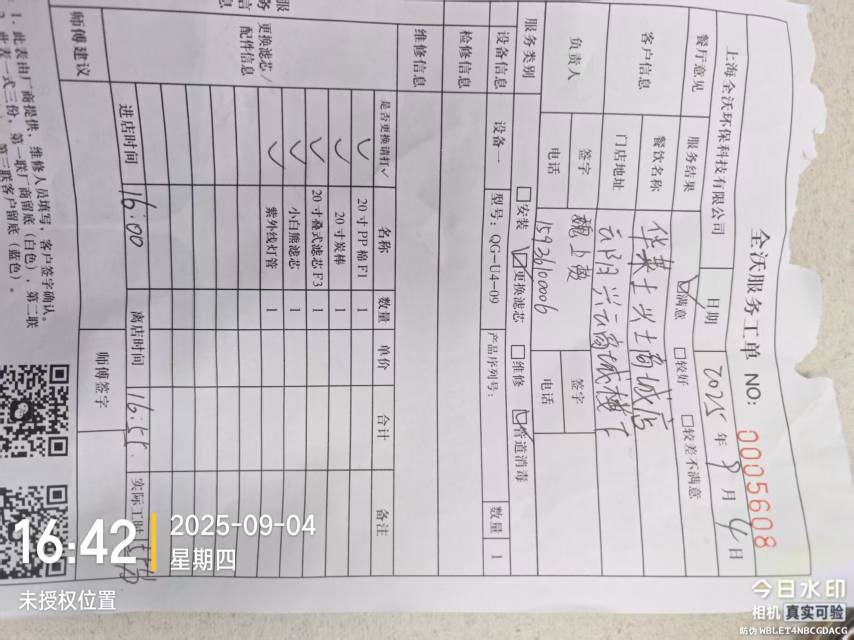 全沃服务工单 NO: 0005608
上海全沃环保科技有限公司 日期 2025年9月4日
餐厅意见 服务结果 ☑满意 □较好 □较差不满意
客户信息 餐饮名称 华莱士兴士商城店
门店地址
负责人 签字 签字
电话 15936100006 电话
服务类别 □安装 ☑更换滤芯 □维修 ☑管道消毒
设备信息 设备一 型号：QG-U4-09 产品序列号： 数量 1
检修信息
维修信息
更换滤芯/配件信息 是否更换请打√ 名称 数量 单价 合计 备注
✓ 20寸PP棉F1 1
✓ 20寸炭棒 1
✓ 20寸叠式滤芯F3 1
✓ 小白熊滤芯 1
✓ 紫外线灯管 1
进店时间 16:00 离店时间 16:55 实际工时
师傅建议 师傅签字
1. 此表由厂商提供，维修人员填写，客户签字确认。
2. 此表一式三份，第一联厂商留底（白色），第二联
第三联客户留底（蓝色）。
16:42
2025-09-04
星期四
未授权位置
今日水印
相机 真实可验
防伪 WBLET4NBCGDACG